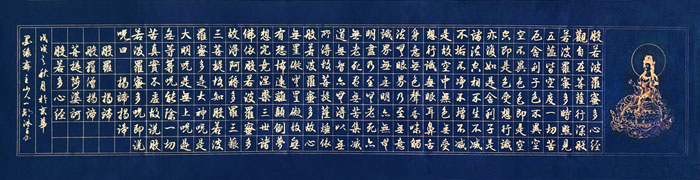 般若波羅蜜多心經
觀自在菩薩行深般
若波羅蜜多時照見
五蘊皆空度一切苦
厄舍利子色不異空
空不異色色即是空
空即是色受想行識
亦復如是舍利子是
諸法空相不生不滅
不垢不淨不增不減
是故空中無色無受
想行識無眼耳鼻舌
身意無色聲香味觸
法無眼界乃至無意
識界無無明亦無無
明盡乃至無老死亦
無老死盡無苦集滅
道無智亦無得以無
所得故菩提薩埵依
般若波羅蜜多故心
無罣礙無罣礙故無
有恐怖遠離顛倒夢
想究竟涅槃三世諸
佛依般若波羅蜜多
故得阿耨多羅三藐
三菩提故知般若波
羅蜜多是大神咒是
大明咒是無上咒是
無等等咒能除一切
苦真實不虛故說般
若波羅蜜多咒即說
咒曰 揭諦揭諦
般羅揭諦
般羅僧揭諦
菩提薩婆訶
般若多心經
戊戌之秋月於京華